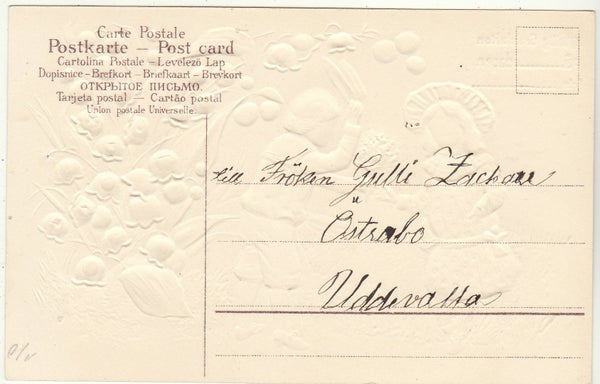 Carte Postale
Postkarte – Post card
Cartolina Postale – Levelező Lap
Dopisnice – Brefkort – Briefkaart – Brevkort
ОТКРЫТОЕ ПИСЬМО.
Tarjeta postal — Cartão postal
Union postale Universelle.
till Fröken Gulli Zachau
Östrabo
Uddevalla